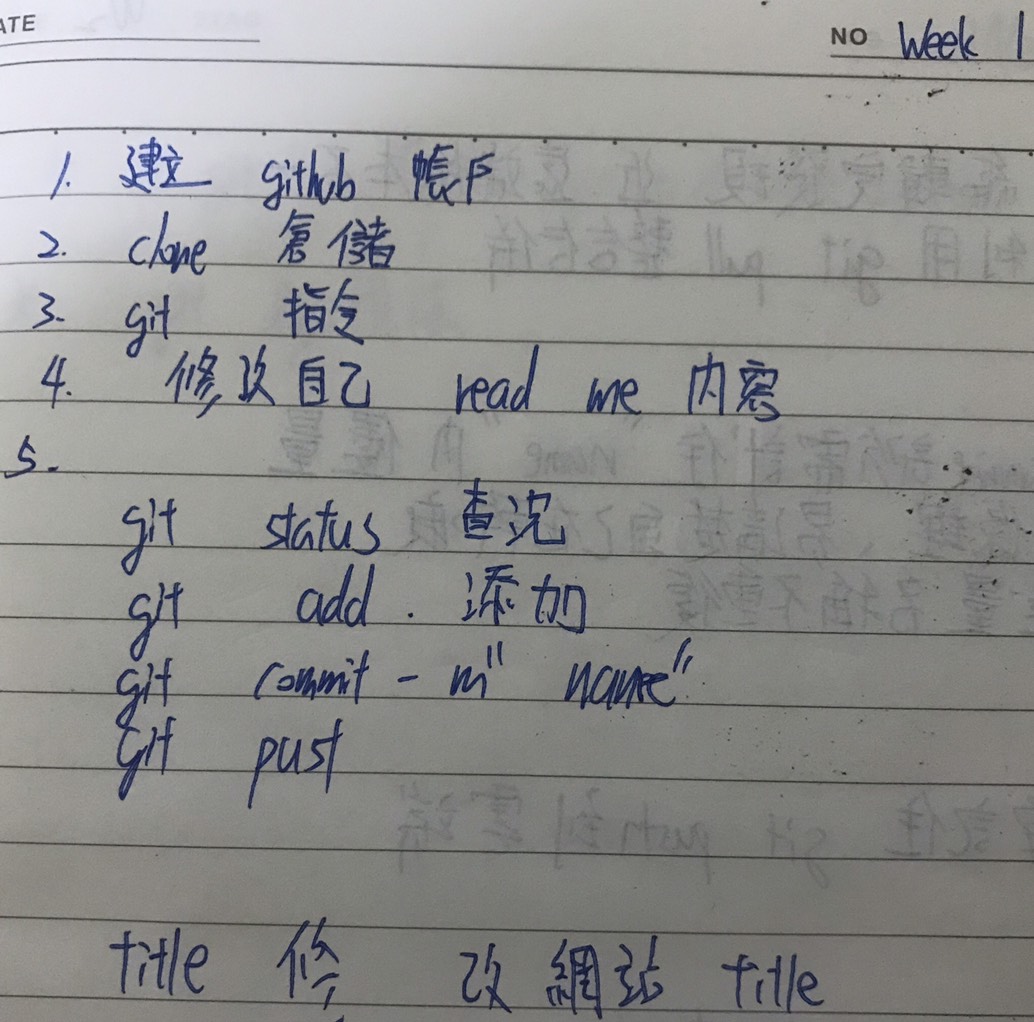 DATE
NO Week 1
1. 建立 github 帳戶
2. clone 倉儲
3. git 指令
4. 修改自己 read me 內容
5.
git status 查況
git add . 添加
git commit - m" name"
git pust
title 修 改網站 title